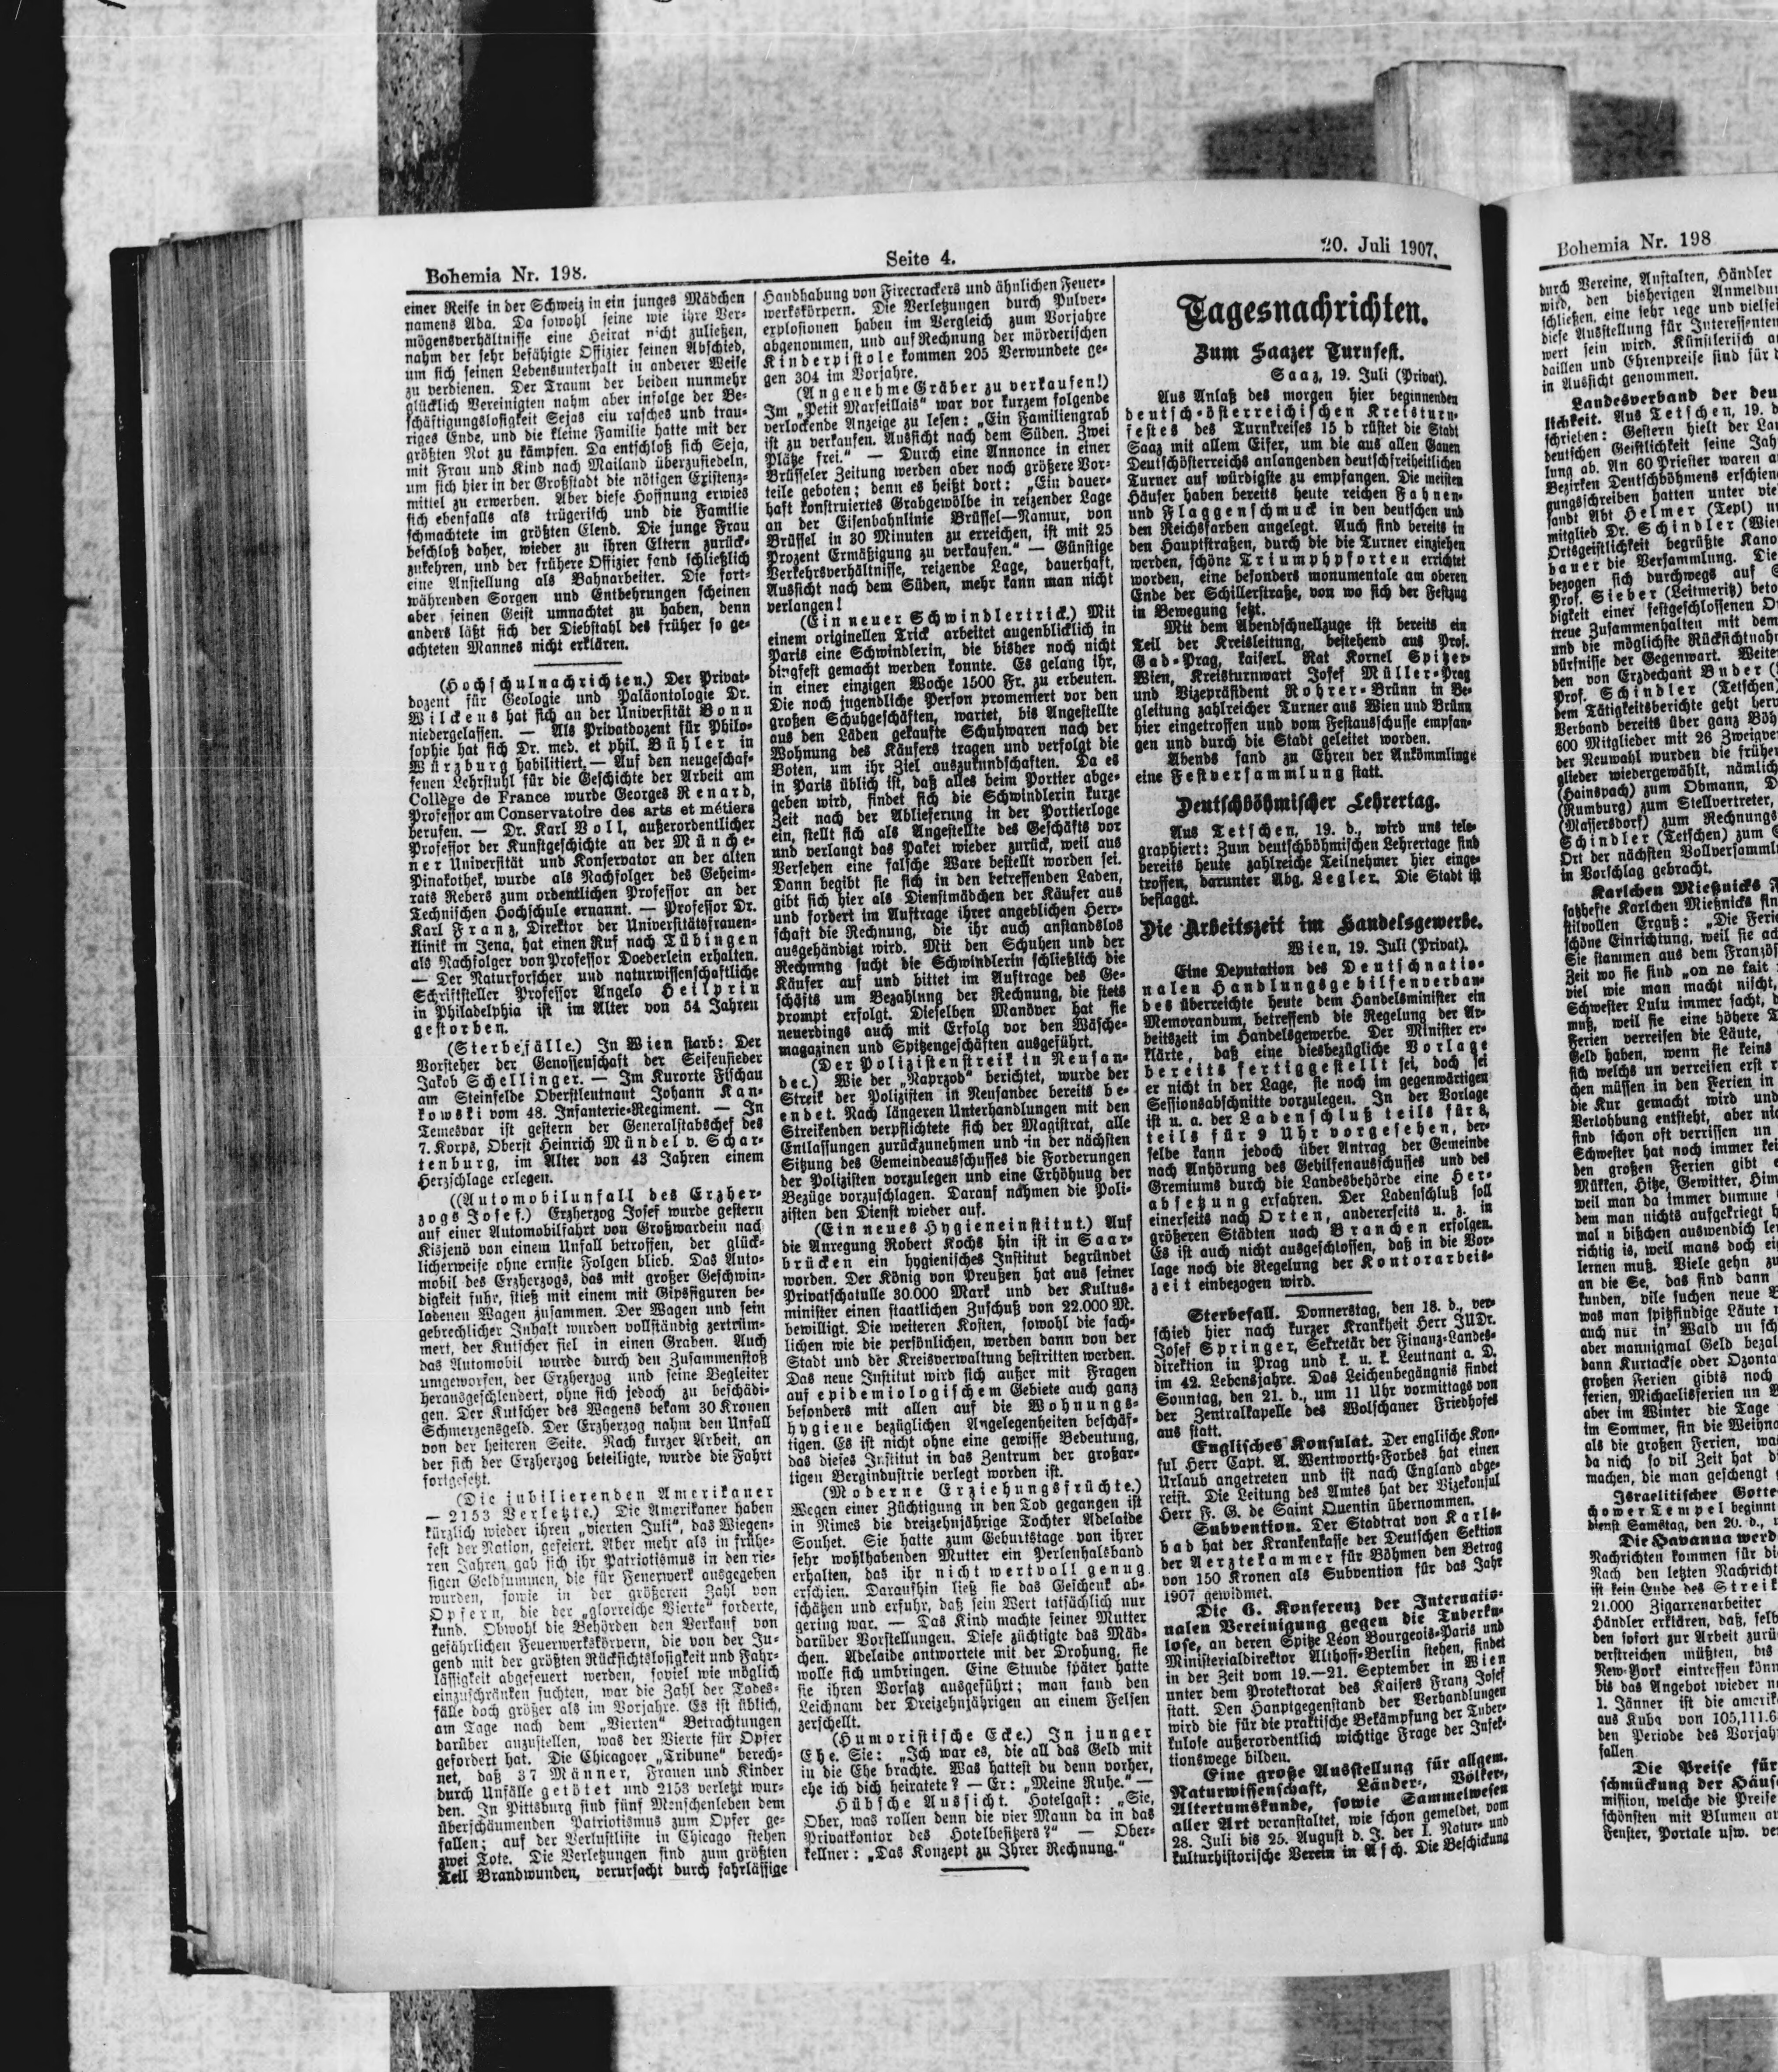 Bohemia Nr. 198.
Seite 4.
20. Juli 1907.
einer Reise in der Schweiz in ein junges Mädchen
namens Ada. Da sowohl seine wie ihre Ver-
mögensverhältnisse eine Heirat nicht zuließen,
nahm der sehr befähigte Offizier seinen Abschied,
um sich seinen Lebensunterhalt in anderer Weise
zu verdienen. Der Traum der beiden nunmehr
glücklich Vereinigten nahm aber infolge der Be-
schäftigungslosigkeit Sejas eiu rasches und trau-
riges Ende, und die kleine Familie hatte mit der
größten Not zu kämpfen. Da entschloß sich Seja,
mit Frau und Kind nach Mailand überzusiedeln,
um sich hier in der Großstadt die nötigen Existenz-
mittel zu erwerben. Aber diese Hoffnung erwies
sich ebenfalls als trügerisch und die Familie
schmachtete im größten Elend. Die junge Frau
beschloß daher, wieder zu ihren Eltern zurück-
zukehren, und der frühere Offizier fand schließlich
eine Anstellung als Bahnarbeiter. Die fort-
währenden Sorgen und Entbehrungen scheinen
aber seinen Geist umnachtet zu haben, denn
anders läßt sich der Diebstahl des früher so ge-
achteten Mannes nicht erklären.
(Hochschulnachrichten.) Der Privat-
dozent für Geologie und Paläontologie Dr.
Wilckens hat sich an der Universität Bonn
niedergelassen. — Als Privatdozent für Philo-
sophie hat sich Dr. med. et phil. Bühler in
Würzburg habilitiert. — Auf den neugeschaf-
fenen Lehrstuhl für die Geschichte der Arbeit am
Collège de France wurde Georges Renard,
Professor am Conservatoire des arts et métiers
berufen. — Dr. Karl Voll, außerordentlicher
Professor der Kunstgeschichte an der Münche-
ner Universität und Konservator an der alten
Pinakothek, wurde als Nachfolger des Geheim-
rats Rebers zum ordentlichen Professor an der
Technischen Hochschule ernannt. — Professor Dr.
Karl Franz, Direktor der Universitätsfrauen-
klinik in Jena, hat einen Ruf nach Tübingen
als Nachfolger von Professor Doederlein erhalten.
— Der Naturforscher und naturwissenschaftliche
Schriftsteller Professor Angelo Heilprin
in Philadelphia ist im Alter von 54 Jahren
gestorben.
(Sterbefälle.) In Wien starb: Der
Vorsteher der Genossenschaft der Seifensieder
Jakob Schellinger. — Im Kurorte Fischau
am Steinfelde Oberstleutnant Johann Kan-
kowski vom 48. Infanterie-Regiment. — In
Temesvar ist gestern der Generalstabschef des
7. Korps, Oberst Heinrich Mündel v. Schar-
tenburg, im Alter von 43 Jahren einem
Herzschlage erlegen.
((Automobilunfall des Erzher-
zogs Josef.) Erzherzog Josef wurde gestern
auf einer Automobilfahrt von Großwardein nach
Kisjenö von einem Unfall betroffen, der glück-
licherweise ohne ernste Folgen blieb. Das Auto-
mobil des Erzherzogs, das mit großer Geschwin-
digkeit fuhr, stieß mit einem mit Gipsfiguren be-
ladenen Wagen zusammen. Der Wagen und sein
gebrechlicher Inhalt wurden vollständig zertrüm-
mert, der Kutscher fiel in einen Graben. Auch
das Automobil wurde durch den Zusammenstoß
umgeworfen, der Erzherzog und seine Begleiter
herausgeschleudert, ohne sich jedoch zu beschädi-
gen. Der Kutscher des Wagens bekam 30 Kronen
Schmerzensgeld. Der Erzherzog nahm den Unfall
von der heiteren Seite. Nach kurzer Arbeit, an
der sich der Erzherzog beteiligte, wurde die Fahrt
fortgesetzt.
(Die jubilierenden Amerikaner
— 2153 Verletzte.) Die Amerikaner haben
kürzlich wieder ihren „vierten Juli“, das Wiegen-
fest der Nation, gefeiert. Aber mehr als in frühe-
ren Jahren gab sich ihr Patriotismus in den rie-
sigen Geldsummen, die für Feuerwerk ausgegeben
wurden, sowie in der größeren Zahl von
Opfern, die der „glorreiche Vierte“ forderte,
kund. Obwohl die Behörden den Verkauf von
gefährlichen Feuerwerkskörpern, die von der Ju-
gend mit der größten Rücksichtslosigkeit und Fahr-
lässigkeit abgefeuert werden, soviel wie möglich
einzuschränken suchten, war die Zahl der Todes-
fälle doch größer als im Vorjahre. Es ist üblich,
am Tage nach dem „Vierten“ Betrachtungen
darüber anzustellen, was der Vierte für Opfer
gefordert hat. Die Chicagoer „Tribune“ berech-
net, daß 37 Männer, Frauen und Kinder
durch Unfälle getötet und 2153 verletzt wur-
den. In Pittsburg sind fünf Menschenleben dem
überschäumenden Patriotismus zum Opfer ge-
fallen; auf der Verlustliste in Chicago stehen
zwei Tote. Die Verletzungen sind zum größten
Teil Brandwunden, verursacht durch fahrlässige
Handhabung von Firecrackers und ähnlichen Feuer-
werkskörpern. Die Verletzungen durch Pulver-
explosionen haben im Vergleich zum Vorjahre
abgenommen, und auf Rechnung der mörderischen
Kinderpistole kommen 205 Verwundete ge-
gen 304 im Vorjahre.
(Angenehme Gräber zu verkaufen!)
Im „Petit Marseillais“ war vor kurzem folgende
verlockende Anzeige zu lesen: „Ein Familiengrab
ist zu verkaufen. Aussicht nach dem Süden. Zwei
Plätze frei.“ — Durch eine Annonce in einer
Brüsseler Zeitung werden aber noch größere Vor-
teile geboten; denn es heißt dort: „Ein dauer-
haft konstruiertes Grabgewölbe in reizender Lage
an der Eisenbahnlinie Brüssel—Namur, von
Brüssel in 30 Minuten zu erreichen, ist mit 25
Prozent Ermäßigung zu verkaufen.“ — Günstige
Verkehrsverhältnisse, reizende Lage, dauerhaft,
Aussicht nach dem Süden, mehr kann man nicht
verlangen!
(Ein neuer Schwindlertrick.) Mit
einem originellen Trick arbeitet augenblicklich in
Paris eine Schwindlerin, die bisher noch nicht
dingfest gemacht werden konnte. Es gelang ihr,
in einer einzigen Woche 1500 Fr. zu erbeuten.
Die noch jugendliche Person promeniert vor den
großen Schuhgeschäften, wartet, bis Angestellte
aus den Läden gekaufte Schuhwaren nach der
Wohnung des Käufers tragen und verfolgt die
Boten, um ihr Ziel auszukundschaften. Da es
in Paris üblich ist, daß alles beim Portier abge-
geben wird, findet sich die Schwindlerin kurze
Zeit nach der Ablieferung in der Portierloge
ein, stellt sich als Angestellte des Geschäfts vor
und verlangt das Paket wieder zurück, weil aus
Versehen eine falsche Ware bestellt worden sei.
Dann begibt sie sich in den betreffenden Laden,
gibt sich hier als Dienstmädchen der Käufer aus
und fordert im Auftrage ihrer angeblichen Herr-
schaft die Rechnung, die ihr auch anstandslos
ausgehändigt wird. Mit den Schuhen und der
Rechnung sucht die Schwindlerin schließlich die
Käufer auf und bittet im Auftrage des Ge-
schäfts um Bezahlung der Rechnung, die stets
prompt erfolgt. Dieselben Manöver hat sie
neuerdings auch mit Erfolg vor den Wäsche-
magazinen und Spitzengeschäften ausgeführt.
(Der Polizistenstreik in Neusan-
dec.) Wie der „Naprzod“ berichtet, wurde der
Streik der Polizisten in Neusandec bereits be-
endet. Nach längeren Unterhandlungen mit den
Streikenden verpflichtete sich der Magistrat, alle
Entlassungen zurückzunehmen und in der nächsten
Sitzung des Gemeindeausschusses die Forderungen
der Polizisten vorzulegen und eine Erhöhung der
Bezüge vorzuschlagen. Darauf nahmen die Poli-
zisten den Dienst wieder auf.
(Ein neues Hygieneinstitut.) Auf
die Anregung Robert Kochs hin ist in Saar-
brücken ein hygienisches Institut begründet
worden. Der König von Preußen hat aus seiner
Privatschatulle 30.000 Mark und der Kultus-
minister einen staatlichen Zuschuß von 22.000 M.
bewilligt. Die weiteren Kosten, sowohl die sach-
lichen wie die persönlichen, werden dann von der
Stadt und der Kreisverwaltung bestritten werden.
Das neue Institut wird sich außer mit Fragen
auf epidemiologischem Gebiete auch ganz
besonders mit allen auf die Wohnungs-
hygiene bezüglichen Angelegenheiten beschäf-
tigen. Es ist nicht ohne eine gewisse Bedeutung,
das dieses Institut in das Zentrum der großar-
tigen Bergindustrie verlegt worden ist.
(Moderne Erziehungsfrüchte.)
Wegen einer Züchtigung in den Tod gegangen ist
in Nimes die dreizehnjährige Tochter Adelaide
Souhet. Sie hatte zum Geburtstage von ihrer
sehr wohlhabenden Mutter ein Perlenhalsband
erhalten, das ihr nicht wertvoll genug
erschien. Daraufhin ließ sie das Geschenk ab-
schätzen und erfuhr, daß sein Wert tatsächlich nur
gering war. — Das Kind machte seiner Mutter
darüber Vorstellungen. Diese züchtigte das Mäd-
chen. Adelaide antwortete mit der Drohung, sie
wolle sich umbringen. Eine Stunde später hatte
sie ihren Vorsatz ausgeführt; man fand den
Leichnam der Dreizehnjährigen an einem Felsen
zerschellt.
(Humoristische Ecke.) In junger
Ehe. Sie: „Ich war es, die all das Geld mit
in die Ehe brachte. Was hattest du denn vorher,
ehe ich dich heiratete? — Er: „Meine Ruhe.“ —
Hübsche Aussicht. Hotelgast: „Sie,
Ober, was rollen denn die vier Mann da in das
Privatkontor des Hotelbesitzers?“ — Ober-
kellner: „Das Konzept zu Ihrer Rechnung.“
Tagesnachrichten.
Zum Saazer Turnfest.
Saaz, 19. Juli (Privat).
Aus Anlaß des morgen hier beginnenden
deutsch-österreichischen Kreisturn-
festes des Turnkreises 15 b rüstet die Stadt
Saaz mit allem Eifer, um die aus allen Gauen
Deutschösterreichs anlangenden deutschfreiheitlichen
Turner auf würdigste zu empfangen. Die meisten
Häuser haben bereits heute reichen Fahnen-
und Flaggenschmuck in den deutschen und
den Reichsfarben angelegt. Auch sind bereits in
den Hauptstraßen, durch die die Turner einziehen
werden, schöne Triumphpforten errichtet
worden, eine besonders monumentale am oberen
Ende der Schillerstraße, von wo sich der Festzug
in Bewegung setzt.
Mit dem Abendschnellzuge ist bereits ein
Teil der Kreisleitung, bestehend aus Prof.
Gad-Prag, kaiserl. Rat Kornel Spitzer-
Wien, Kreisturnwart Josef Müller-Prag
und Vizepräsident Rohrer-Brünn in Be-
gleitung zahlreicher Turner aus Wien und Brünn
hier eingetroffen und vom Festausschusse empfan-
gen und durch die Stadt geleitet worden.
Abends fand zu Ehren der Ankömmlinge
eine Festversammlung statt.
Deutschböhmischer Lehrertag.
Aus Tetschen, 19. d., wird uns tele-
graphiert: Zum deutschböhmischen Lehrertage sind
bereits heute zahlreiche Teilnehmer hier einge-
troffen, darunter Abg. Legler. Die Stadt ist
beflaggt.
Die Arbeitszeit im Handelsgewerbe.
Wien, 19. Juli (Privat).
Eine Deputation des Deutschnatio-
nalen Handlungsgehilfenverban-
des überreichte heute dem Handelsminister ein
Memorandum, betreffend die Regelung der Ar-
beitszeit im Handelsgewerbe. Der Minister er-
klärte, daß eine diesbezügliche Vorlage
bereits fertiggestellt sei, doch sei
er nicht in der Lage, sie noch im gegenwärtigen
Sessionsabschnitte vorzulegen. In der Vorlage
ist u. a. der Ladenschluß teils für 8,
teils für 9 Uhr vorgesehen, der-
selbe kann jedoch über Antrag der Gemeinde
nach Anhörung des Gehilfenausschusses und des
Gremiums durch die Landesbehörde eine Her-
absetzung erfahren. Der Ladenschluß soll
einerseits nach Orten, andererseits u. z. in
größeren Städten nach Branchen erfolgen.
Es ist auch nicht ausgeschlossen, daß in die Vor-
lage noch die Regelung der Kontorarbeis-
zeit einbezogen wird.
Sterbefall. Donnerstag, den 18. d., ver-
schied hier nach kurzer Krankheit Herr JUDr.
Josef Springer, Sekretär der Finanz-Landes-
direktion in Prag und k. u. k. Leutnant a. D.
im 42. Lebensjahre. Das Leichenbegängnis findet
Sonntag, den 21. d., um 11 Uhr vormittags von
der Zentralkapelle des Wolschaner Friedhofes
aus statt.
Englisches Konsulat. Der englische Kon-
sul Herr Capt. A. Wentworth-Forbes hat einen
Urlaub angetreten und ist nach England abge-
reist. Die Leitung des Amtes hat der Vizekonsul
Herr F. G. de Saint Quentin übernommen.
Subvention. Der Stadtrat von Karls-
bad hat der Krankenkasse der Deutschen Sektion
der Aerztekammer für Böhmen den Betrag
von 150 Kronen als Subvention für das Jahr
1907 gewidmet.
Die 6. Konferenz der Internatio-
nalen Vereinigung gegen die Tuberku-
lose, an deren Spitze Léon Bourgeois-Paris und
Ministerialdirektor Althoff-Berlin stehen, findet
in der Zeit vom 19.—21. September in Wien
unter dem Protektorat des Kaisers Franz Josef
statt. Den Hauptgegenstand der Verhandlungen
wird die für die praktische Bekämpfung der Tuber-
kulose außerordentlich wichtige Frage der Infek-
tionswege bilden.
Eine große Ausstellung für allgem.
Naturwissenschaft, Länder-, Völker-,
Altertumskunde, sowie Sammelwesen
aller Art veranstaltet, wie schon gemeldet, vom
28. Juli bis 25. August d. J. der I. Natur- und
kulturhistorische Verein in Asch. Die Beschickung
Bohemia Nr. 198
durch Vereine, Anstalten, Händler
wird, den bisherigen Anmeldu
schließen, eine sehr rege und vielsei
diese Ausstellung für Interessenten
wert sein wird. Künstlerisch a
daillen und Ehrenpreise sind für d
in Aussicht genommen.
Landesverband der deu
lichkeit. Aus Tetschen, 19. d
schrieben: Gestern hielt der La
deutschen Geistlichkeit seine Jah
lung ab. An 60 Priester waren a
Bezirken Deutschböhmens erschien
gungsschreiben hatten unter vie
sandt Abt Helmer (Tepl) un
mitglied Dr. Schindler (Wie
Ortsgeistlichkeit begrüßte Kano
bauer die Versammlung. Die
bezogen sich durchwegs auf
Prof. Sieber (Leitmeritz) beto
digkeit einer festgeschlossenen O
treue Zusammenhalten mit dem
und die möglichste Rücksichtnahm
dürfnisse der Gegenwart. Weite
den von Erzdechant Buder
Prof. Schindler (Tetschen)
dem Tätigkeitsberichte geht herv
Verband bereits über ganz Böh
600 Mitglieder mit 26 Zweigve
der Neuwahl wurden die früher
glieder wiedergewählt, nämlich
(Hainspach) zum Obmann, D
(Rumburg) zum Stellvertreter,
(Maffersdorf) zum Rechnungs
Schindler (Tetschen) zum
Ort der nächsten Vollversamml
in Vorschlag gebracht.
Karlchen Mießnicks
stilvollen Erguß: „Die Ferie
schöne Einrichtung, weil sie ac
Sie stammen aus dem Französ
Zeit wo sie sind „on ne fait
viel wie man macht nischt,
Schwester Lulu immer sacht, d
muß, weil sie eine höhere T
Ferien verreisen die Läute,
Geld haben, wenn sie keins
sich welchs un verreisen erst r
chen müssen in den Ferien in
die Kur gemacht wird und
Verlohbung entsteht, aber nic
sind schon oft verrissen un
Schwester hat noch immer kei
den großen Ferien gibt e
Mükken, Hitze, Gewitter, Him
weil man da immer dumme
dem man nichts aufgekriegt h
mal n bißchen auswendich le
richtig is, weil mans doch ei
lernen muß. Viele gehn zu
an die Se, das sind dann
kunden, vile suchen neue
was man spitzfindige Läute
auch nur in Wald un sch
aber mannigmal Geld bezal
dann Kurtackse oder Ozonta
großen Ferien gibts noch
ferien, Michaelisferien un
aber im Winter die Tage
im Sommer, sin die Weihna
als die großen Ferien, wa
da nich so vil Zeit hat d
machen, die man geschengt
Israelitischer Gotte
chower Tempel beginnt
dienst Samstag, den 20. d.,
Die Havanna werd
Nachrichten kommen für di
Nach den letzten Nachricht
ist kein Ende des Streik
21.000 Zigarrenarbeiter
Händler erklären, daß, selb
den sofort zur Arbeit zurü
verstreichen müßten, bis
New-York eintreffen könn
bis das Angebot wieder n
1. Jänner ist die amerik
aus Kuba von 105,111.6
den Periode des Vorjahr
fallen
Die Preise für
schmückung der Häus
mission, welche die Preise
schönsten mit Blumen au
Fenster, Portale usw. ve